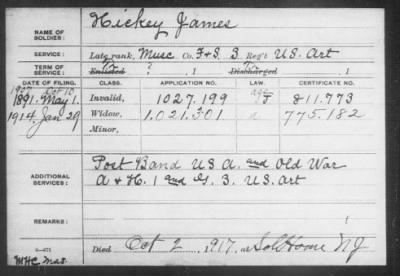 NAME OF SOLDIER: Hickey James
SERVICE: Late rank, Musc Co. F&S 3. Reg't U.S. Art
TERM OF SERVICE: Enlisted ? , 1 Discharged , 1
DATE OF FILING. CLASS. APPLICATION NO. LAW. CERTIFICATE NO.
1907 Oct 10
1891. May 1. Invalid, 1027.199 811.773
1914. Jan 29 Widow, 1.021.301 775.182
Minor,
ADDITIONAL SERVICES: Post Band U S A. and Old War
A & H. 1 and G. 3. U.S. Art
REMARKS: 1
Died Oct 2 , 1917, at Sol Home N J